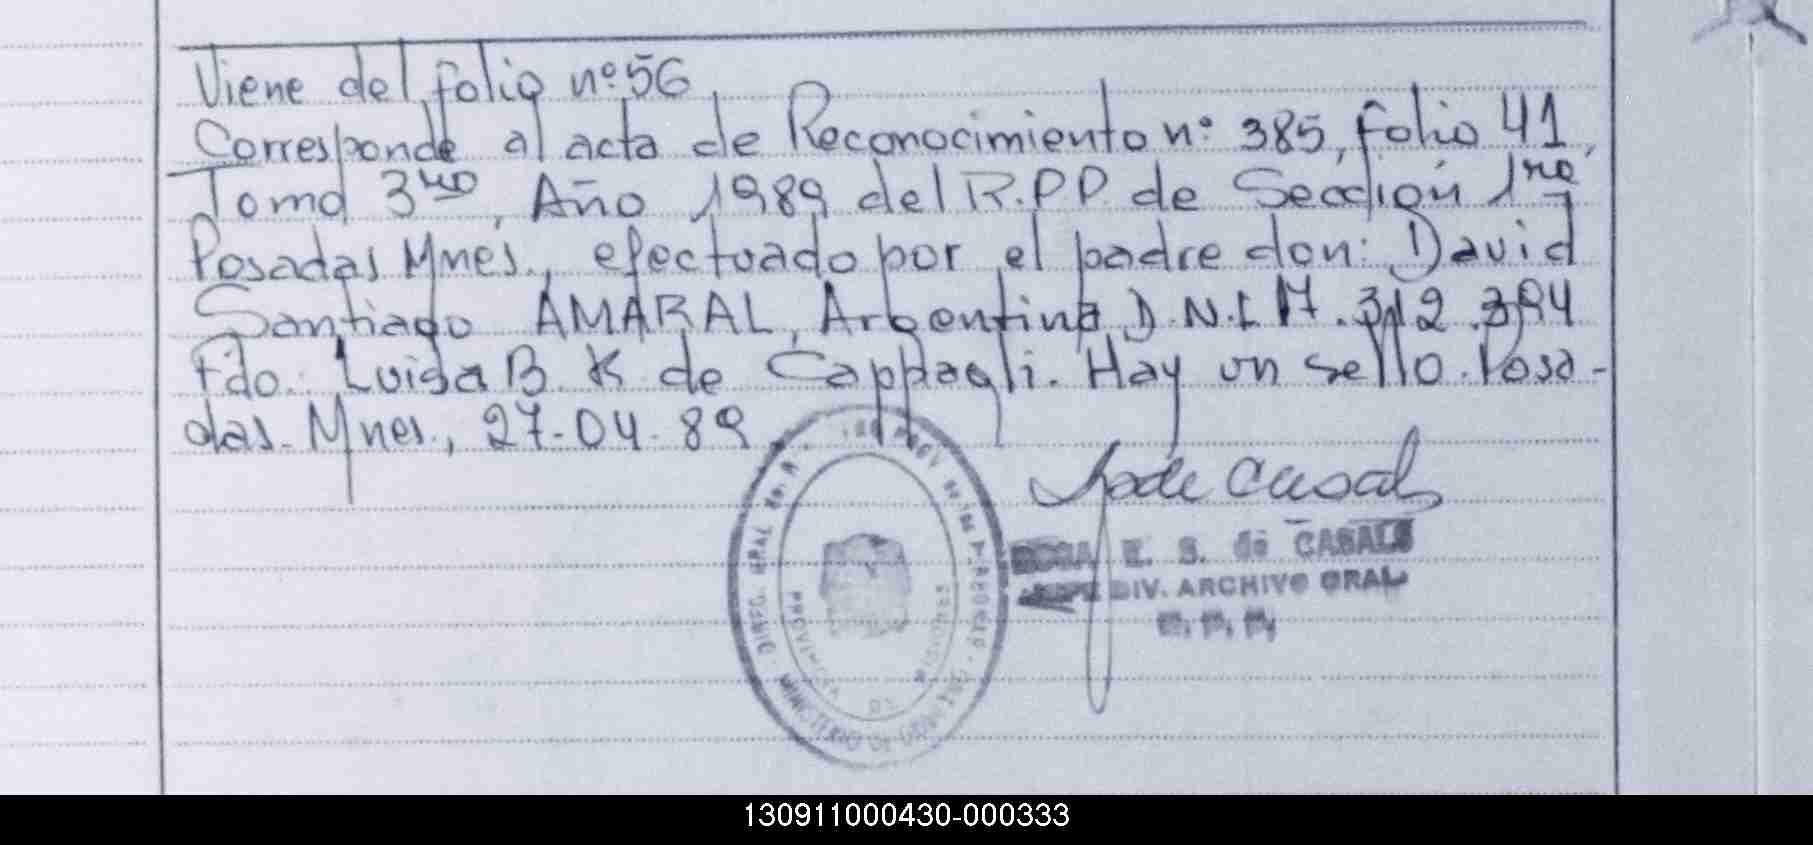 Viene del folio nº 56
Corresponde al acta de Reconocimiento nº 385, folio 41,
Tomo 3ro, Año 1989 del R.P.P. de Sección 1ra
Posadas Mnes., efectuado por el padre don: David
Santiago AMARAL, Argentino, D.N.I 17.312.394
Fdo. Luisa B. K de Cappagli. Hay un sello. Posa-
das. Mnes., 27-04-89
E. S. de CASALS
JEFE DIV. ARCHIVO GRAL
PROVINCIA DE MISIONES
130911000430-000333